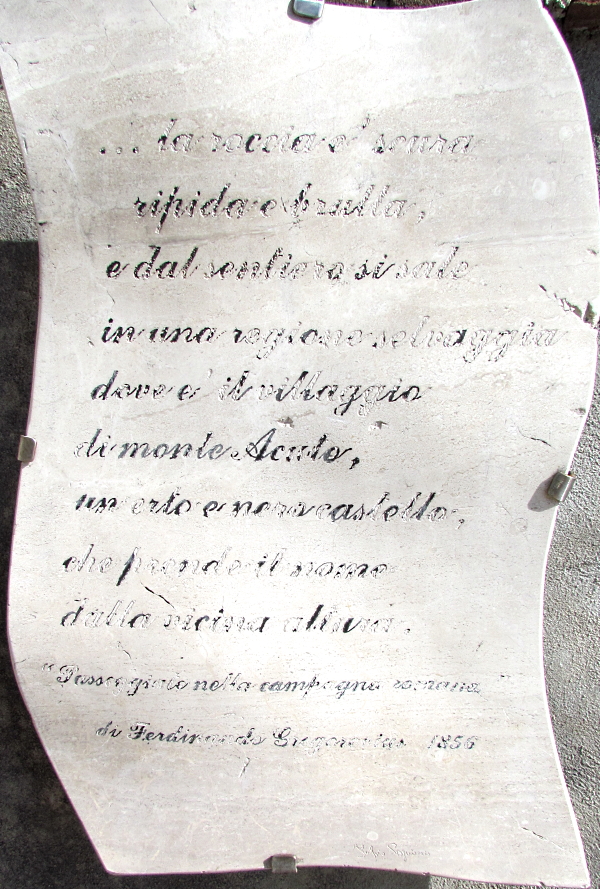 ... la roccia e' scura
ripida e brulla,
e dal sentiero si sale
in una regione selvaggia
dove e' il villaggio
di monte Acuto,
un erto e nero castello,
che prende il nome
dalla vicina altura.
"Passeggiate nella campagna romana"
di Ferdinando Gregorovius 1856